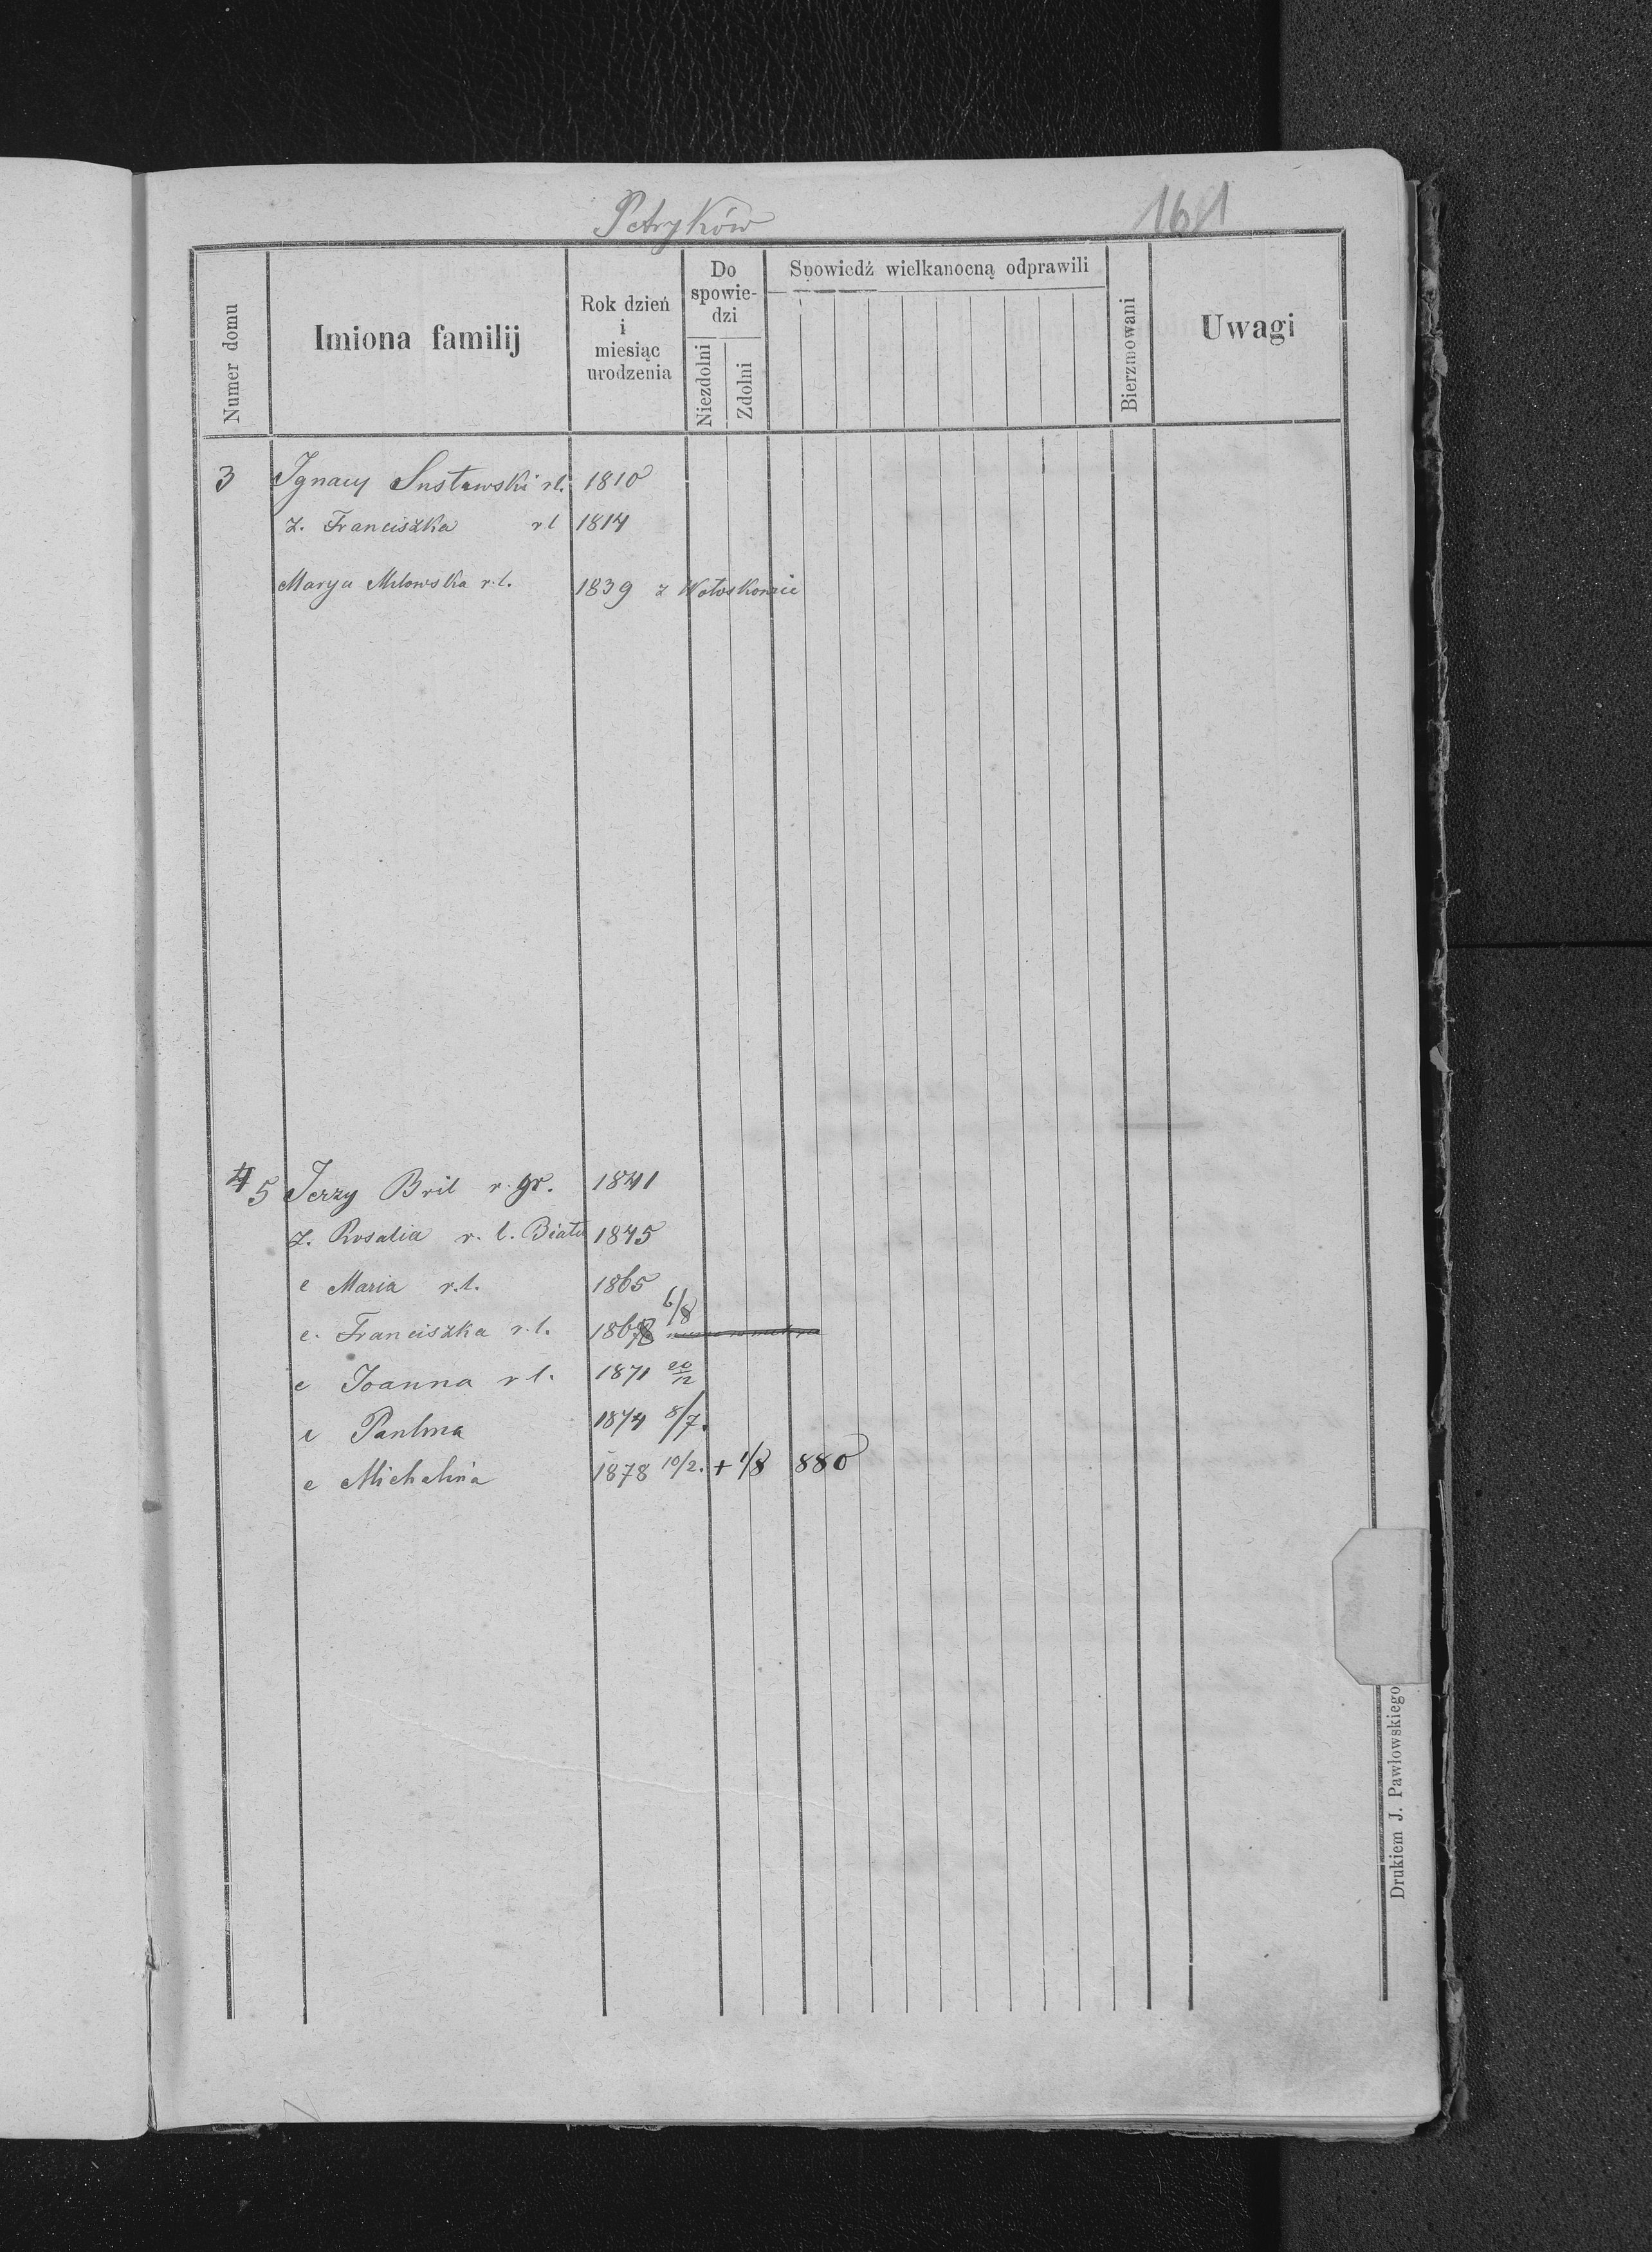 Petryków
161
Numer domu
Imiona familij
Rok dzień
i
miesiąc
urodzenia
Do
spowie-
dzi
Niezdolni
Zdolni
Spowiedź wielkanocną odprawili
Bierzmowani
Uwagi
3 Ignacy rl. 1810
ż. Franciszka rl 1814
Marya r.l. 1839 z
4 5 Jerzy Bril r. gr. 1841
ż. Rosalia r. l. 1845
c Maria r.l. 1865
c. Franciszka r.l. 6/8
c Joanna r l. 1871 20/12
c Paulina 1874 8/7.
c Michalina 1878 10/2. + 1/8 880
Drukiem J. Pawłowskiego